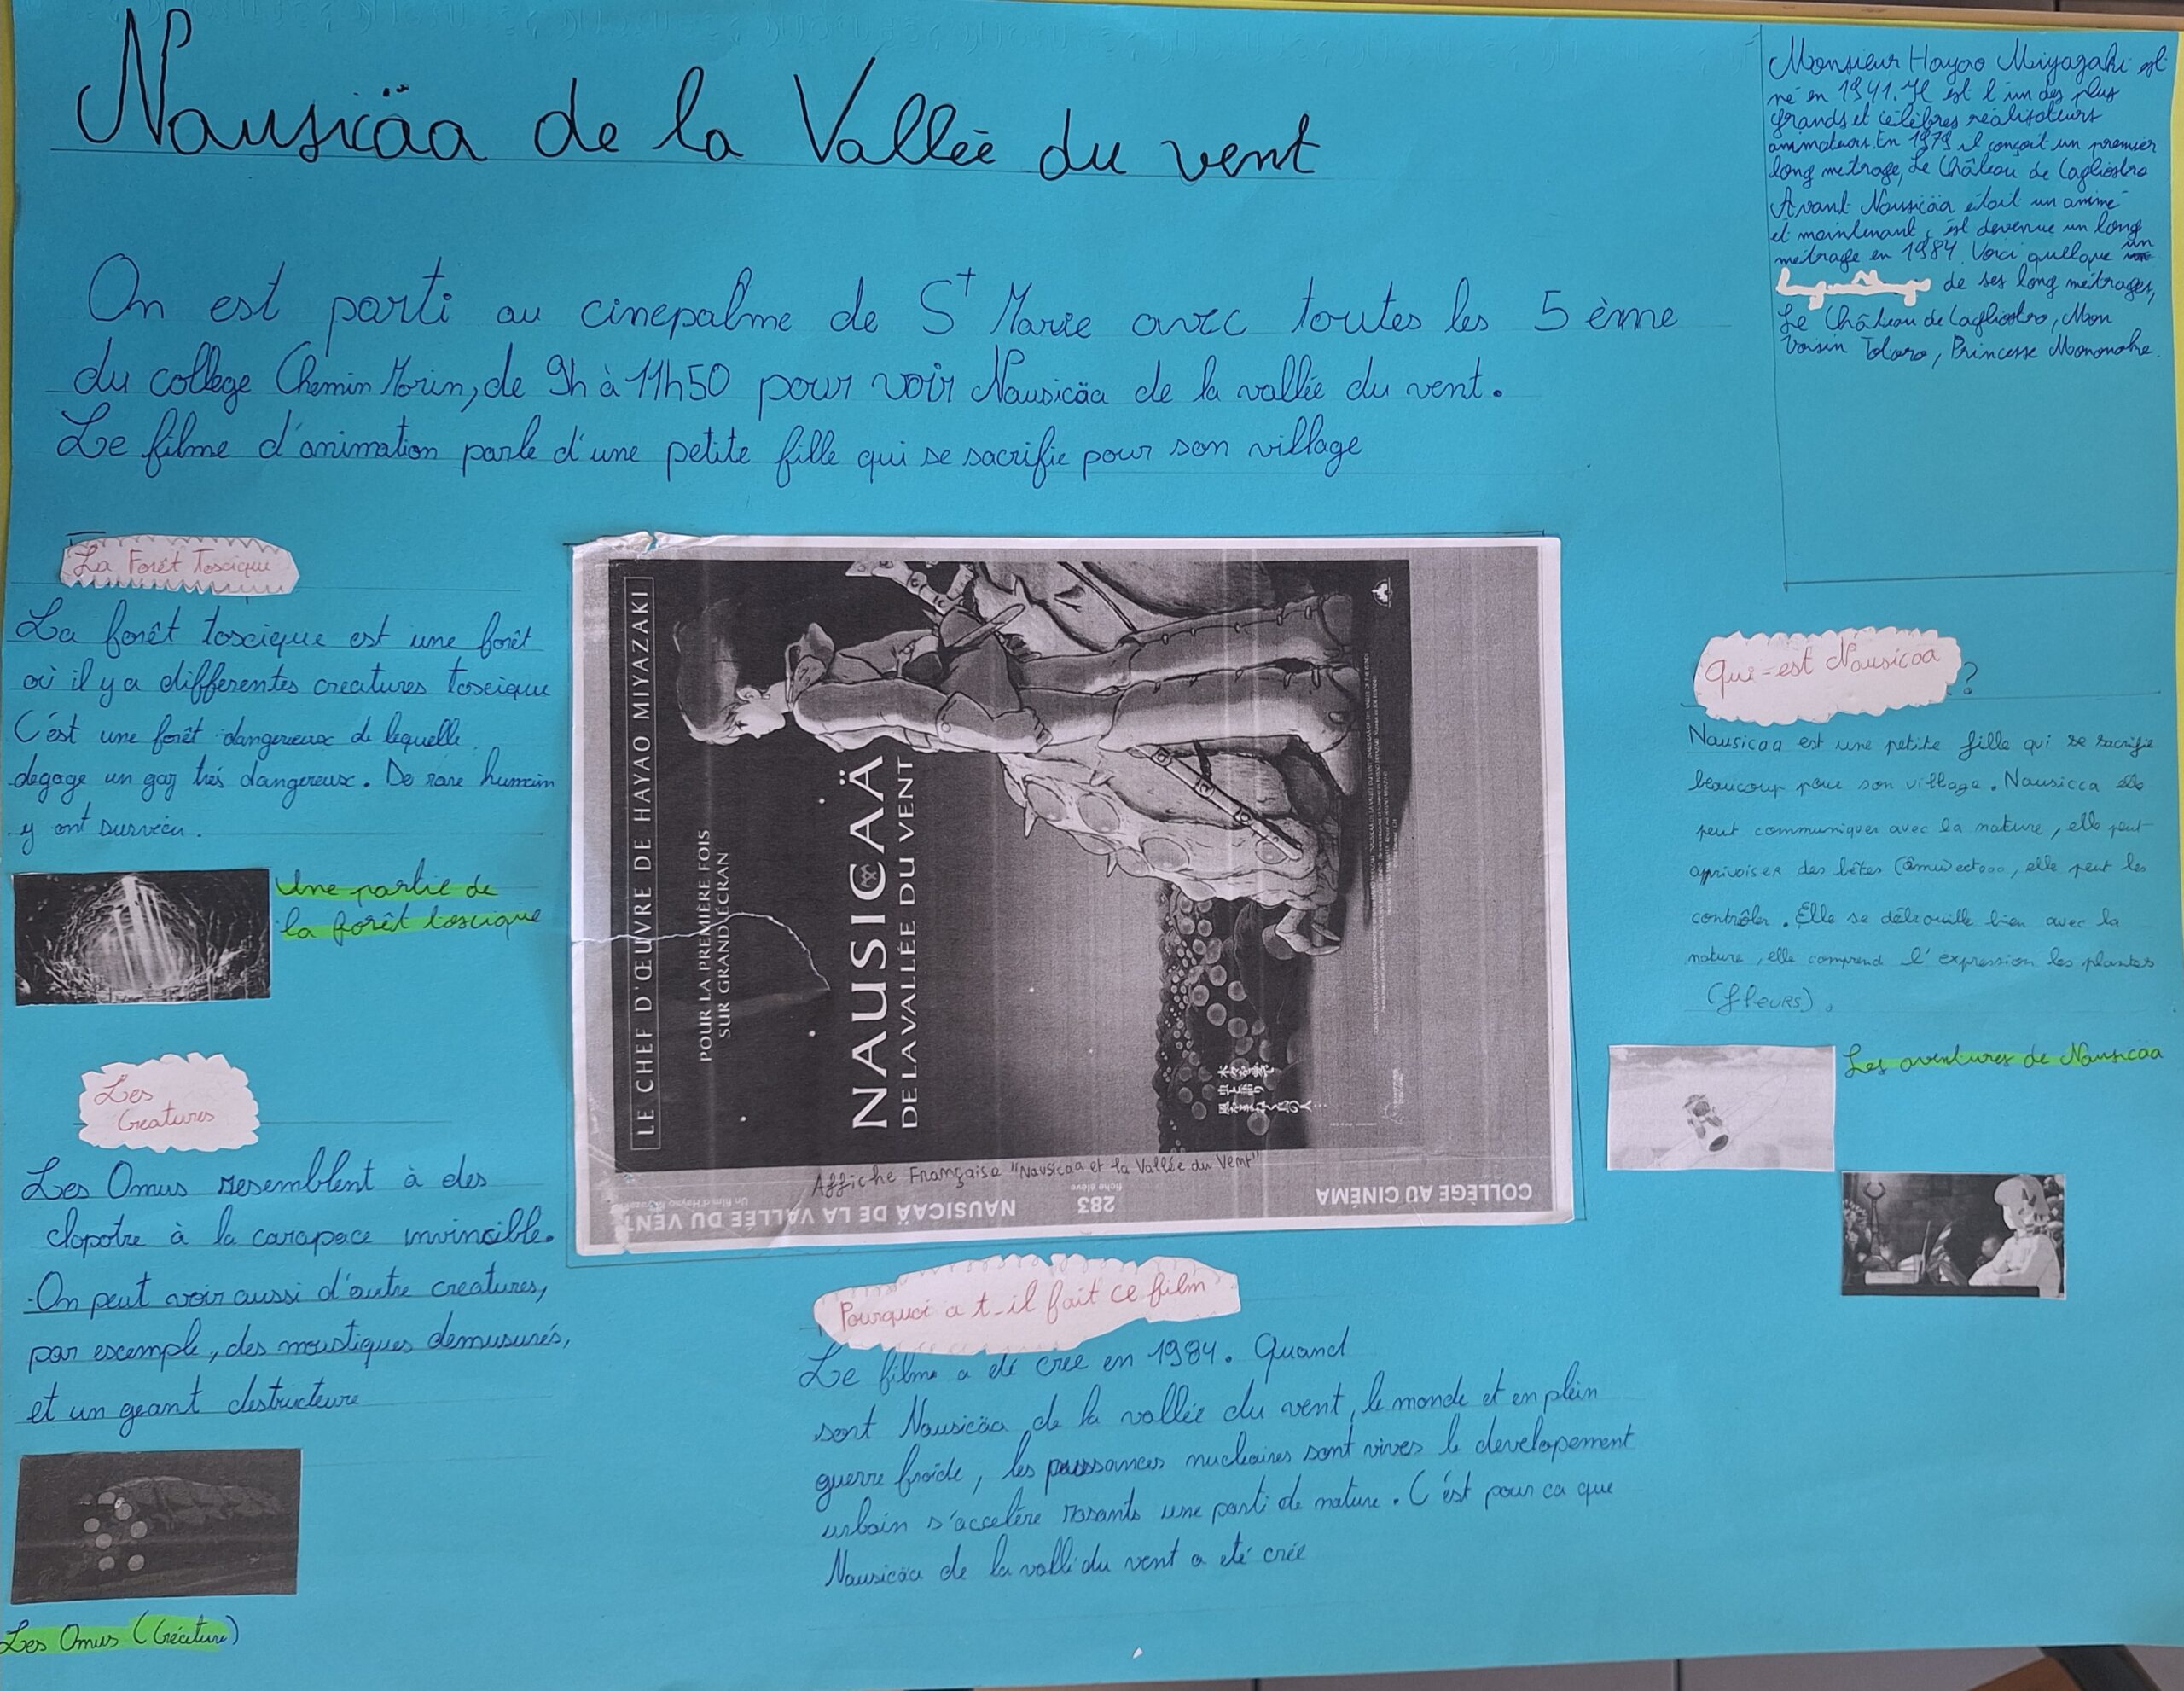 Nausicäa de la Vallée du vent
On est parti au cinepalme de St Marie avec toutes les 5 ème
du collège Chemin Morin, de 9h à 11h50 pour voir Nausicäa de la vallée du vent.
Le filme d'animation parle d'une petite fille qui se sacrifie pour son village
Monsieur Hayao Miyazaki est
né en 1941. Il est l'un des plus
grands et célèbres réalisateurs
animateurs. En 1979 il conçoit un premier
long métrage, Le Château de Cagliostro
Avant Nausicäa était un animé
et maintenant, est devenue un long
métrage en 1984. Voici quelque un
de ses long métrages,
Le Château de Cagliostro, Mon
Voisin Totoro, Princesse Mononoke.
La Forêt Toscique
La forêt toscique est une forêt
où il y a differentes creatures toscique
C'est une forêt dangereux de lequelle
degage un gaz très dangereux. De rare humain
y ont survécu.
Une partie de
la forêt toscique
Les
Creatures
Les Omus resemblent à des
clopotre à la carapace invincible.
On peut voir aussi d'autre creatures,
par escemple, des moustiques demusurés,
et un geant destructeure
Les Omus (Créature)
LE CHEF D'ŒUVRE DE HAYAO MIYAZAKI
POUR LA PREMIÈRE FOIS
SUR GRAND ÉCRAN
NAUSICAÄ
DE LA VALLÉE DU VENT
木々を愛で
虫と語り
風をまねく鳥の人…
Affiche Française "Nausicaa et la Vallée du Vent"
COLLÈGE AU CINÉMA
283
fiche élève
NAUSICAÄ DE LA VALLÉE DU VENT
Un film d'Hayao Miyazaki
Pourquoi a t-il fait ce film
Le filme a été crée en 1984. Quand
sort Nausicäa de la vallée du vent, le monde et en plein
guerre froide, les puissances nucleaires sont vives le developement
urbain s'accelère rasants une parti de nature. C'est pour ca que
Nausicäa de la vallé du vent a eté crée
Qui-est Nausicaa ?
Nausicaa est une petite fille qui se sacrifie
beaucoup pour son village. Nausicca elle
peut communiquer avec la nature, elle peut
apprivoiser des bêtes elle peut les
contrôler. Elle se débrouille bien avec la
nature, elle comprend l'expression les plantes
(fleurs).
Les aventures de Nausicaa